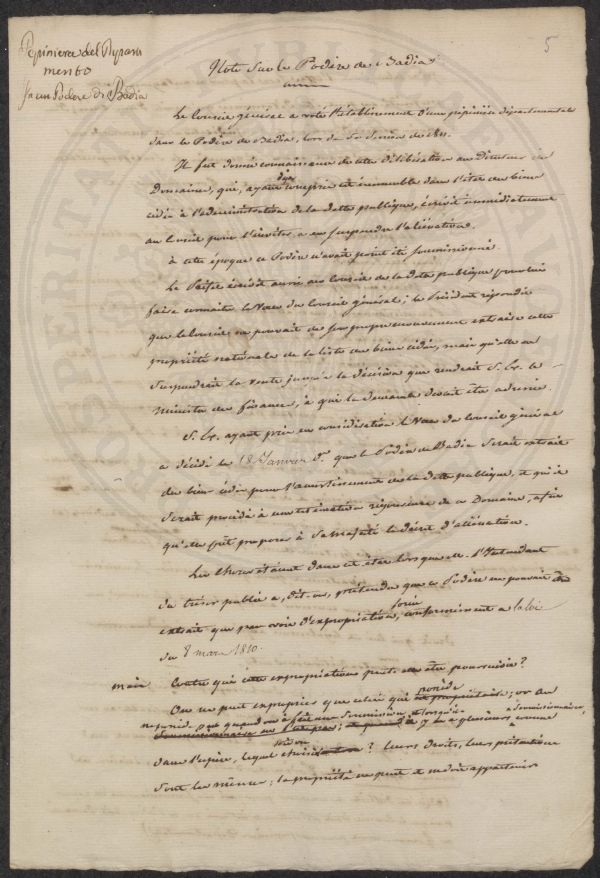 Pepiniera del Dyparti
mento
5
Note sur le Podère de Badia
in un Podere di Badia
Le Conseil général a voté l'établissement d'une pépinière départementale
dans le Podère de Badia, lors de sa Session de 1811.
Il fut donné connaissance de cette délibération au Directeur des
Domaines, qui, ayant déjà compris cet immeuble dans l'état des biens
cédés à l'administration de la dette publique, écrivit immédiatement
au Conseil pour l'inviter à en suspendre l'aliénation.
à cette époque ce Podère n'avait point été soumissionné.
Le Préfet écrivit aussi au Conseil de la dette publique pour lui
faire connaître le Vœu du Conseil général; le Président répondit
que le Conseil ne pouvait de son propre mouvement extraire cette
propriété nationale de la liste des biens cédés, mais qu'elle en
suspendrait la vente jusqu'à la décision que rendrait S. Ex. le
ministre des finances, à qui la demande devait être adressée.
S. Ex. ayant pris en considération le Vœu du Conseil général
a décidé le 18 Janvier dr. que le Podère de Badia serait extrait
des biens cédés pour l'amortissement de la dette publique, et qu'il
serait procédé à une estimation rigoureuse de ce Domaine, afin
qu'elle fût proposée à Sa Majesté le décret d'aliénation.
Les choses étaient dans cet état lorsque M. l'Intendant
du trésor public a, dit-on, prétendu que ce Podère ne pouvait être
extrait que par voie d'expropriation forcée, conformément à la loi
du 8 mars 1810.
mais Contre qui cette expropriation peut-elle être poursuivie?
On ne peut exproprier que celui qui possède; or on
ne possède pas quand on a fait une Soumission, et lorsqu'il y en a plusieurs comme
dans l'espèce, lequel choisira-t-on? leurs droits, leurs prétentions
sont les mêmes; la propriété ne peut et ne doit appartenir